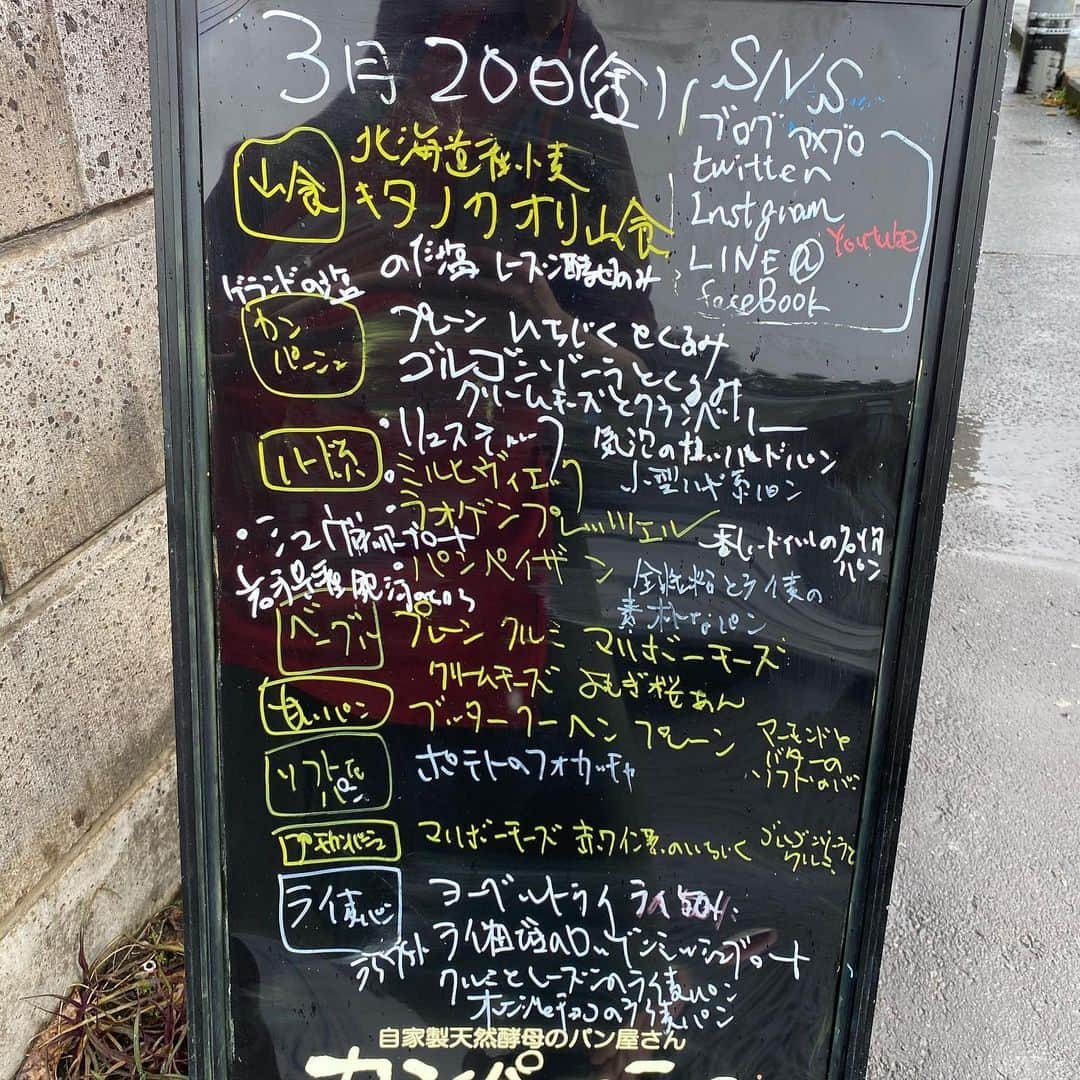 3月20日(金)
SNS
ブログ アメブロ
twitter
Instgram
LINE@
Youtube
faceBook
山食
北海道 小麦
キタノカオリ山食
ゲランドの塩
のだ塩 レーズン酵母のみ
カンパーニュ
プレーン いちじくとくるみ
ゴルゴンゾーラとくるみ
クリームチーズとクランベリー
ハード系
・リュスティック 気泡の ハードパン
・ミルヒヴィエック 小型ハード系パン
ラオゲンプレッツェル ドイツの パン
パンペイザン 全粒粉とライ麦の
素朴なパン
ベーグル
プレーン クルミ マリボーチーズ
クリームチーズ よもぎ桜あん
甘いパン
ブッタークーヘン プレーン
アーモンドや
バターの
ソフトなパン
ポテトのフォカッチャ
プチカンパーニュ
マリボーチーズ 赤ワイン のいちじく
ゴルゴンゾーラと
クルミ
ライ麦パン
ヨーゲルトライ ライ
ライ ロッゲンミッシュブロート
クルミとレーズンのライ麦パン
オレンジとチョコのライ麦パン
自家製天然酵母のパン屋さん